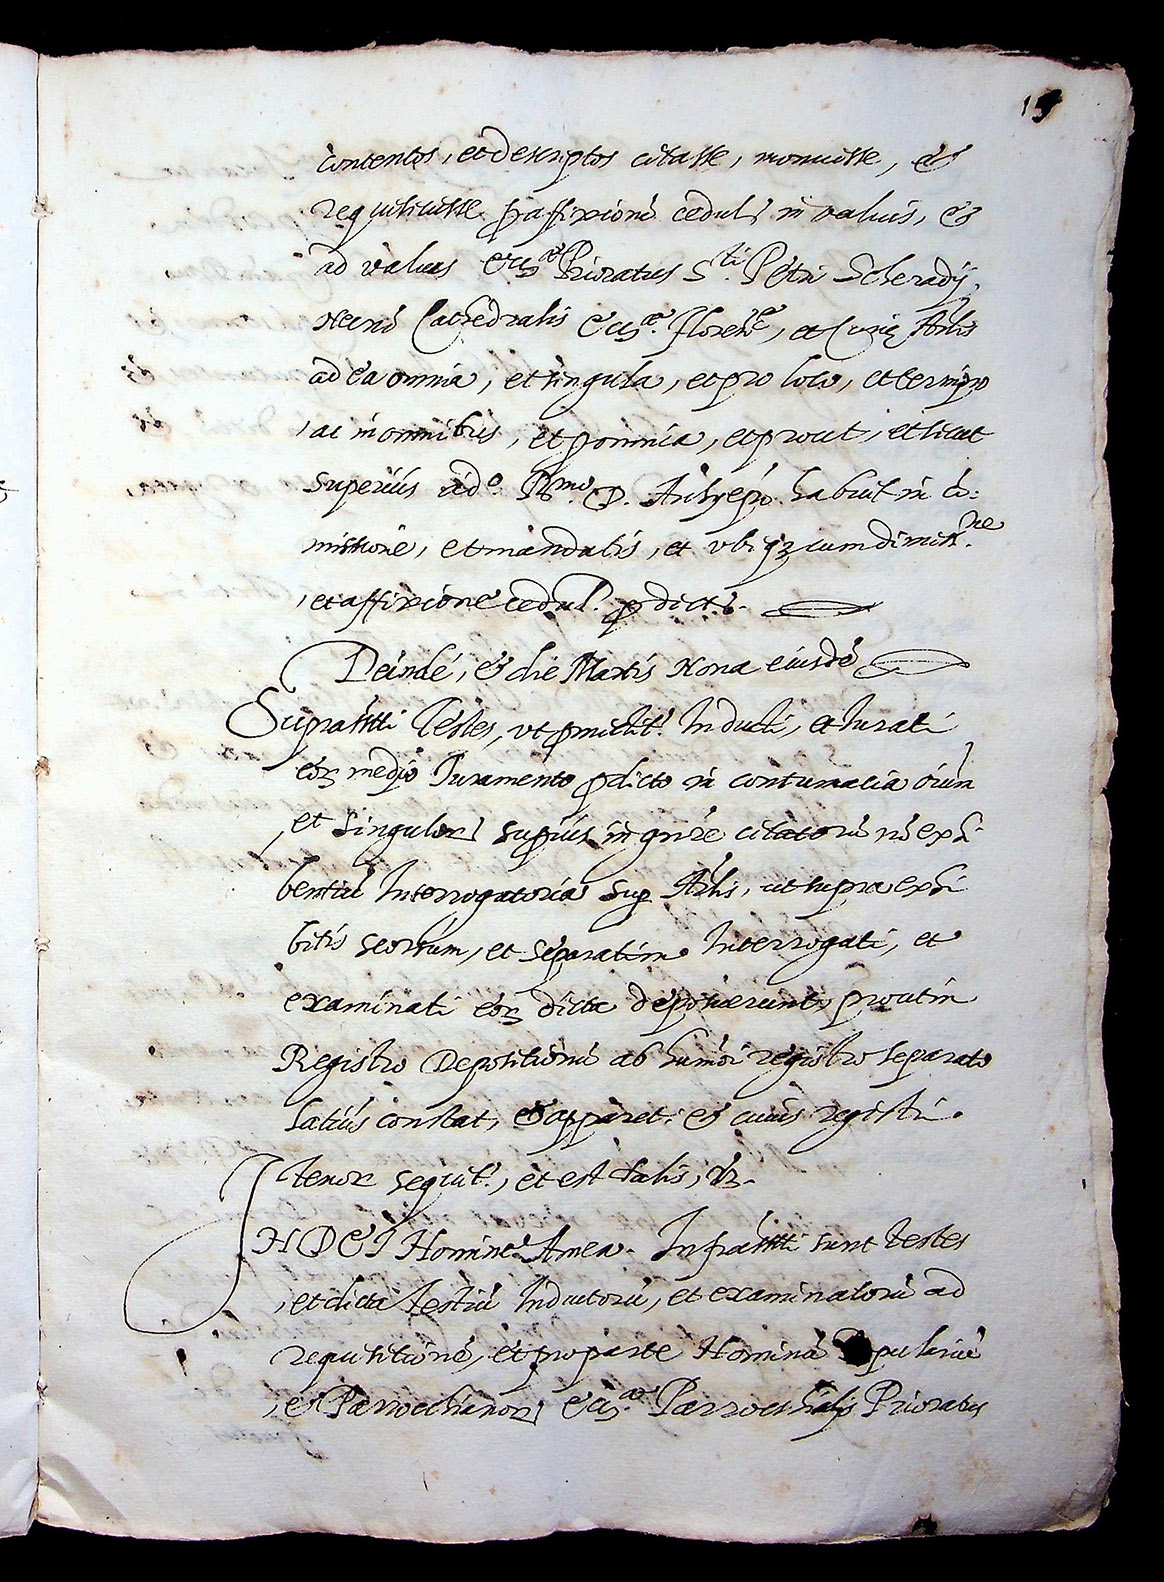 15
contentos, et descriptos citasse, monuisse, et
requisivisse p affixionē cedulę in valvis, et
ad valvas Eccẹ Prioratus S.ti Petri Scheradij,
Necnō Cathedralis Eccę. Florenę, et Curię Archlis
ad ea omnia, et singula, et pro loco, et tempo
, ac in omnibus, et p omnia, et prout, et sicut
superiùs àd.o R.mo D. Archiepo habuit in cō:
missione, et mandatis, et ubiq3 cum dimiss.ne
, et affixione cedul. pdictę.
Deindè, et die Martis Nona eiusdē
Supratti Testes, ut pmittitr Inducti, et Iurati
eor medio Juramento pdicto in contumacia oium
, et singulor superiùs in genere citatorū nō exhi
bentiū Interrogatoria sup Artlis, ut supra exhi
bitis seorsum, et separatim Interrogati, et
examinati eor dicta deposuerunt, prout in
Registro Depositionū ab humoi registro separato
latiùs constat, et apparet: et cuius registri
tenor sequitr, et est talis, vz.
IN DEI Nomine Amen. Infratti sunt testes
, et dicta testiū Inductorū, et examinatorū ad
requisitionē, et pro parte Hominū Populariū
, et Parrochianor Eccę Parrochialis Prioratus